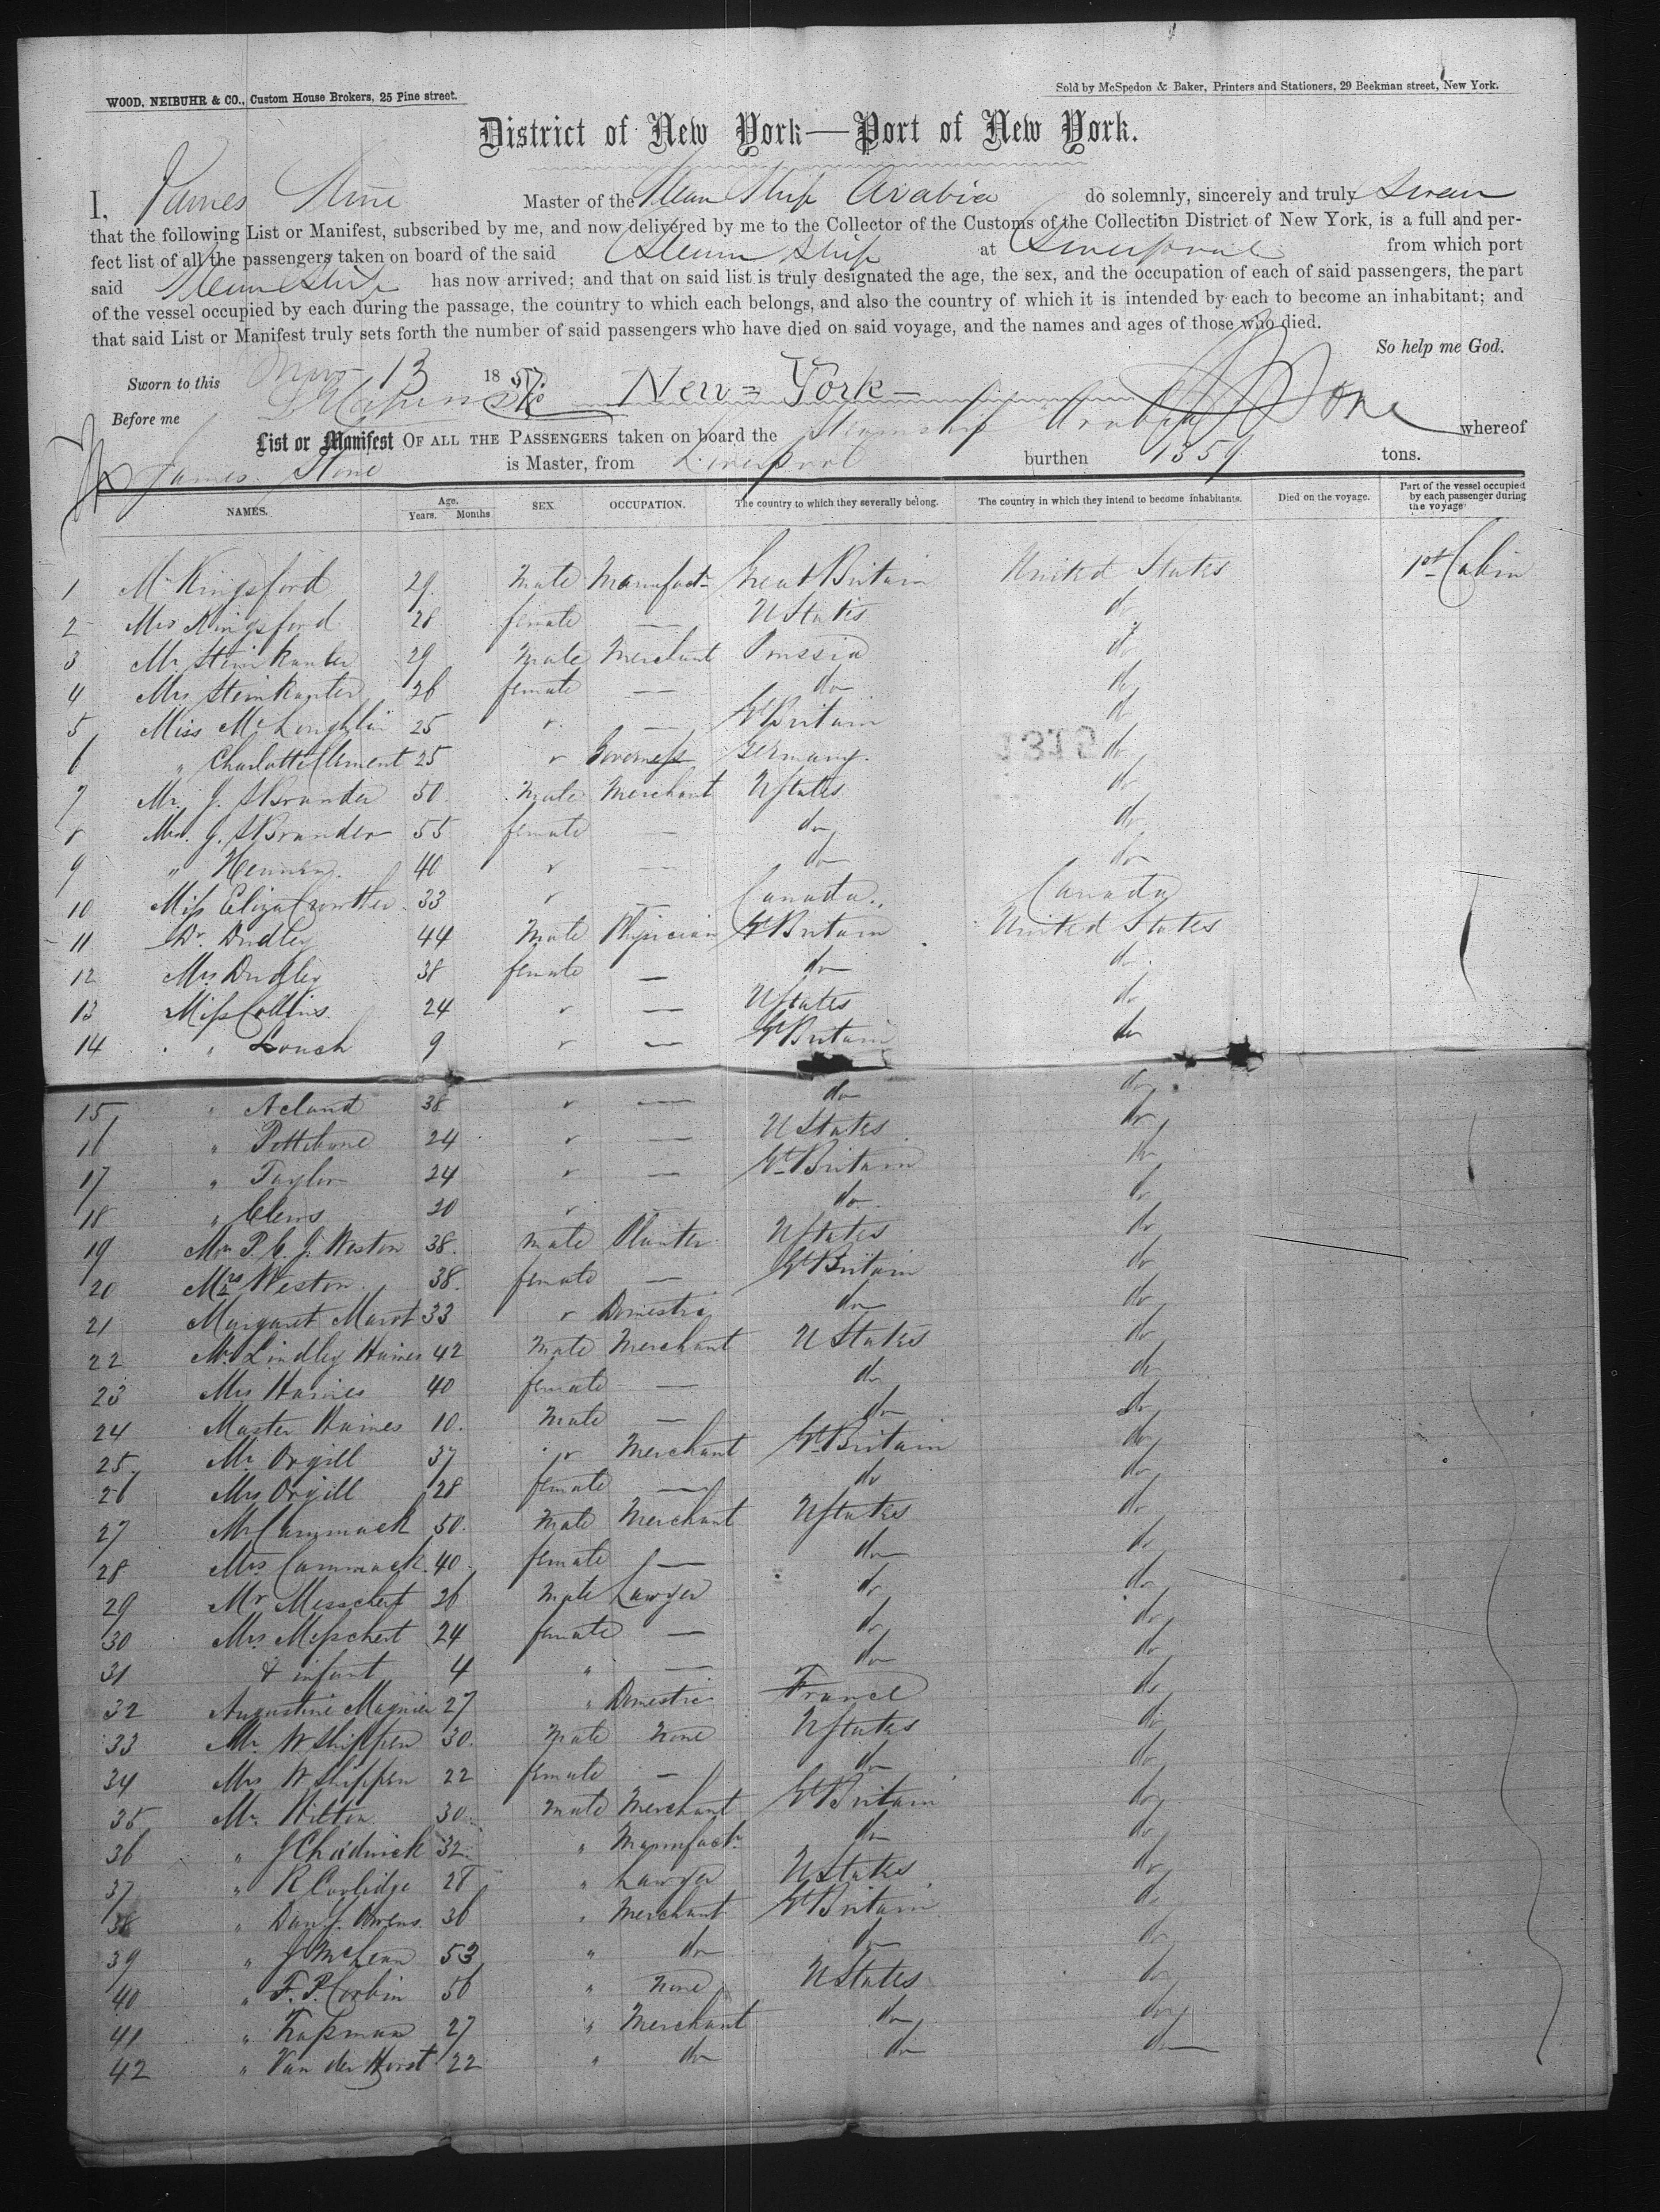 WOOD, NEIBUHR & CO., Custom House Brokers, 25 Pine street.
Sold by McSpedon & Baker, Printers and Stationers, 29 Beekman street, New York.
District of New York—Port of New York.
I, James Stone Master of the Steam Ship Arabia do solemnly, sincerely and truly Swear
that the following List or Manifest, subscribed by me, and now delivered by me to the Collector of the Customs of the Collection District of New York, is a full and per-
fect list of all the passengers taken on board of the said Steam Ship at Liverpool from which port
said Steam Ship has now arrived; and that on said list is truly designated the age, the sex, and the occupation of each of said passengers, the part
of the vessel occupied by each during the passage, the country to which each belongs, and also the country of which it is intended by each to become an inhabitant; and
that said List or Manifest truly sets forth the number of said passengers who have died on said voyage, and the names and ages of those who died.
So help me God.
Sworn to this 13 1857 New=York—
Before me Stone
List or Manifest OF ALL THE PASSENGERS taken on board the Steamship Arabia whereof
James Stone is Master, from Liverpool burthen 1359 tons.
NAMES. Age. Years. Months SEX OCCUPATION. The country to which they severally belong. The country in which they intend to become inhabitants. Died on the voyage. Part of the vessel occupied by each passenger during the voyage
1 Mr Kingsford 29. Male Manufactr Great Britain United States 1st Cabin
2 Mrs Kingsford 28 female — U States do
3 Mr. Steinkauler 29 Male Merchant Prussia do
4 Mrs Steinkauler 26 female — do do
5 Miss McLoughlin 25 " — Gt Britain do
1319
6 " Charlotte Clement 25 " Governess Germany. do
7 Mr. J. S Brander 50 Male Merchant U States do
8 Mrs. J. S Brander 55 female — do do
9 " Hennen. 40 " — do do
10 Miss Eliza Crowther 33 " — Canada.. Canada
11 Dr. Dudley 44 Male Physician Gt Britain United States
12 Mrs Dudley 38 female — do do
13 Miss Collins. 24 " — U States do
14 " Louch 9 " — Gt Britain do
15 " Acland 38 " — do do
16 " Pettibone 24 " — U States do
17 " Taylor 24 " — Gt Britain do
18 " Clews 20 " — do do
19 Mr P. C. J. Weston 38. Male Planter U States do
20 Mrs Weston. 38. female — Gt Britain do
21 Margaret Marot 33 " Domestic do do
22 Mr Lindley Haines 42 Male Merchant U States do
23 Mrs Haines 40 female — do do
24 Master Haines 10. Male — do do
25. Mr Orgill 37 " Merchant Gt Britain do
26 Mrs Orgill 28 female — do do
27 Mr Cammack 50. Male Merchant U States do
28 Mrs Cammack 40. female — do do
29 Mr Messchert 26 Male Lawyer do do
30 Mrs Messchert 24 female — do do
31 & infant 4 " — do do
32 Augustine Magnier 27 " Domestic France do
33 Mr. W Shippen 30. Male None U States do
34 Mrs W Shippen 22 female — do do
35. Mr. Wilton 30. Male Merchant Gt Britain do
36 " J Chadwick 32. " Manufactr do do
37 " R Coolidge 28 " Lawyer U States do
38 " Danl J. Owens 36 " Merchant Gt Britain do
39 " J McLean 53 " do do do
40 " F. P. Corbin 56 " None U States do
41 " Trapman 27 " Merchant do do
42 " Van der Horst 22 " do do do